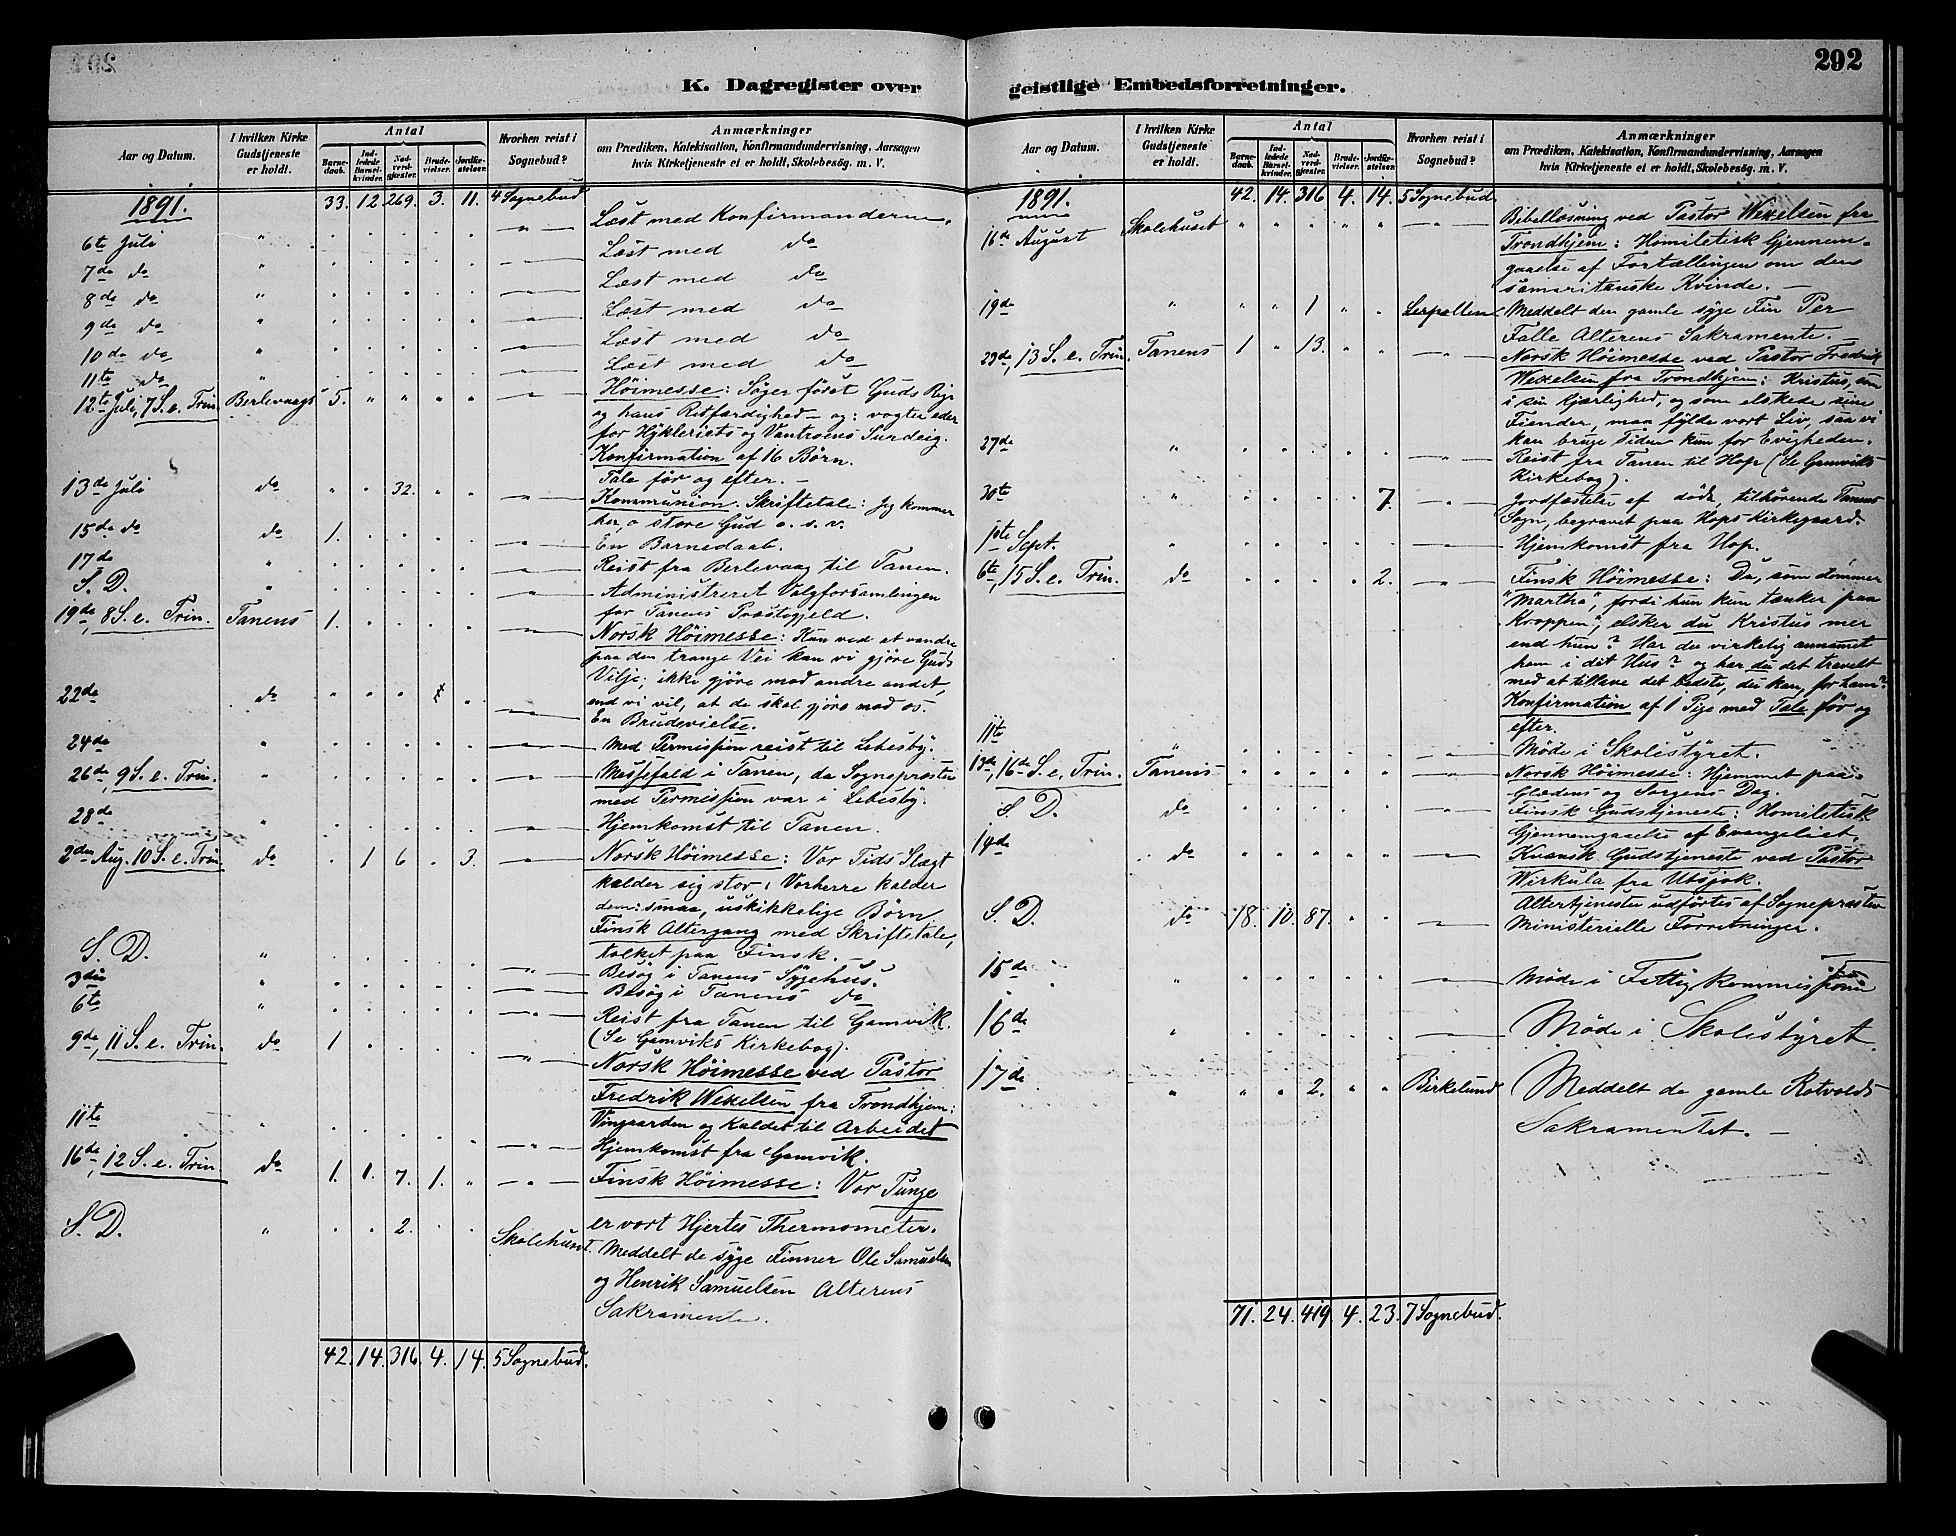 K. Dagregister over
Aar og Datum.
I hvilken Kirke Gudstjeneste er holdt.
Antal
Barnedaab.
Indledede Barselkvinder.
Nadverdgjæster.
Brudevielser.
Jordfæstelser.
Hvorhen reist i Sognebud?
Anmærkninger
om Prædiken, Katekisation, Konfirmandundervisning, Aarsagen
hvis Kirketjeneste ei er holdt, Skolebesøg. m. V.
1891. 33. 12 269. 3. 11. 4 Sognebud
6te Juli " Læst med Konfirmanderne.
7de do " Læst med do
8de do " Læst med do
9de do " Læst med do
10de do " Læst med do
11te do " Læst med do
12te Juli, 7 S. e. Trin. Berlevaags 5. " " " " Höimesse: Söger först Guds Rige
og hans Retfærdighed - og: vogter eder
for Hykleriets og Vantroens Surdeig.
Konfirmation af 16 Börn.
Tale för og efter. -
13de Juli do " " 32. " " Kommunion. Skriftetale: Jeg kommer
her, o store Gud o. s. v.
15de do do 1. En Barnedaab.
17de " Reist fra Berlevaag til Tanen.
S. D. " Administreret Valgforsamlingen
for Tanens Præstegjeld.
19de, 8 S. e. Trin. Tanens 1. Norsk Höimesse: Kun ved at vandre
paa den trange Vei kan vi gjöre Guds
Vilje; ikke gjöre mod andre andet,
end vi vil, at de skal gjöre mod os.
22de do En Brudevielse.
24de " Med Permission reist til Lebesby.
26de, 9 S. e. Trin. " Messefald i Tanen, da Sognepræsten
med Permission var i Lebesby.
28de " Hjemkomst til Tanen.
2den Aug. 10 S. e. Trin. do . 1 6 . 3. Norsk Höimesse: Vor Tids Slægt
kalder sig stor; Vorherre kalder
dem: smaa, uskikkelige Börn
Finsk Altergang med Skriftetale,
tolket paa Finsk. -
S. D. " Besög i Tanens Sygehus.
3die " Besög i Tanens do
6te " Reist fra Tanen til Gamvik.
(Se Gamviks Kirkebog).
9de, 11 S. e. Trin. do 1 Norsk Höimesse ved Pastor
Fredrik Wexelsen fra Trondhjem:
Vingaarden og Kaldet til Arbeidet
11te " Hjemkomst fra Gamvik.
16de, 12 S. e. Trin. do 1. 1. 7. 1. " Finsk Höimesse: Vor Tunge
er vort Hjertes Thermometer.
S. D. " 2. Skolehuset. Meddelt de syge Finner Ole Samuelsen
og Henrik Samuelsen Alterens
Sakramente.
42. 14. 316. 4. 14. 5 Sognebud.
292
geistlige Embedsforretninger.
Aar og Datum.
I hvilken Kirke Gudstjeneste er holdt.
Antal
Barnedaab.
Indledede Barselkvinder.
Nadverdgjæster.
Brudevielser.
Jordfæstelser.
Hvorhen reist i Sognebud?
Anmærkninger
om Prædiken, Katekisation, Konfirmandundervisning, Aarsagen
hvis Kirketjeneste ei er holdt, Skolebesøg. m. V.
1891. 42. 14. 316 4. 14. 5 Sognebud.
16de August Skolehuset Bibellæsning ved Pastor Wexelsen fra
Trondhjem: Homiletisk Gjennem-
gaaelse af Fortællingen om den
samaritanske Kvinde. -
19de " " " 1 " " Meddelt den gamle syge Fin Per
Falle Alterens Sakramente. -
23de, 13 S. e. Trin. Tanens 1 " 13. " " Norsk Höimesse ved Pastor Fredrik
Wexelsen fra Trondhjem: Kristus, som
i sin Kjærlighed, og som elskede sine
Fiender, maa fylde vort Liv, saa vi
kan bruge Tiden kun for Evigheden.
27de " Reist fra Tanen til Hop (Se Gamviks
Kirkebog).
30te " 7. Jordfæstelse af döde tilhörende Tanens
Sogn, begravet paa Hops Kirkegaard.
1ste Sept. " Hjemkomst fra Hop.
6te, 15 S. e. Trin. do 2. Finsk Höimesse: Du, som dömmer
"Martha", fordi hun kun tænker paa
Kroppen, elsker du Kristus mer
end hun? Har du virkelig annammet
ham i dit Hus? og har du det travelt
med at tillave det bedste, du kan, for ham?
Konfirmation af 1 Pige med Tale för og
efter.
11te " Möde i Skolestyret.
13de, 16de S. e. Trin. Tanens Norsk Höimesse: Hjemmet paa
Glædens og Sorgens Dag.
S. D. do Finsk Gudstjeneste: Homiletisk
Gjennemgaaelse af Evangeliet.
14de do Kvænsk Gudstjeneste ved Pastor
Wirkula fra Utsjok.
Altertjenesten udförtes af Sognepræsten
S. D. do 18. 10. 87. Ministerielle Forretninger.
15de " Möde i Fattigkommissionen
16de " Möde i Skolestyret.
17de " " " 2. " " Birkelund Meddelt de gamle Rotvolds
Sakramentet. -
71. 24. 419. 4. 23. 7 Sognebud.